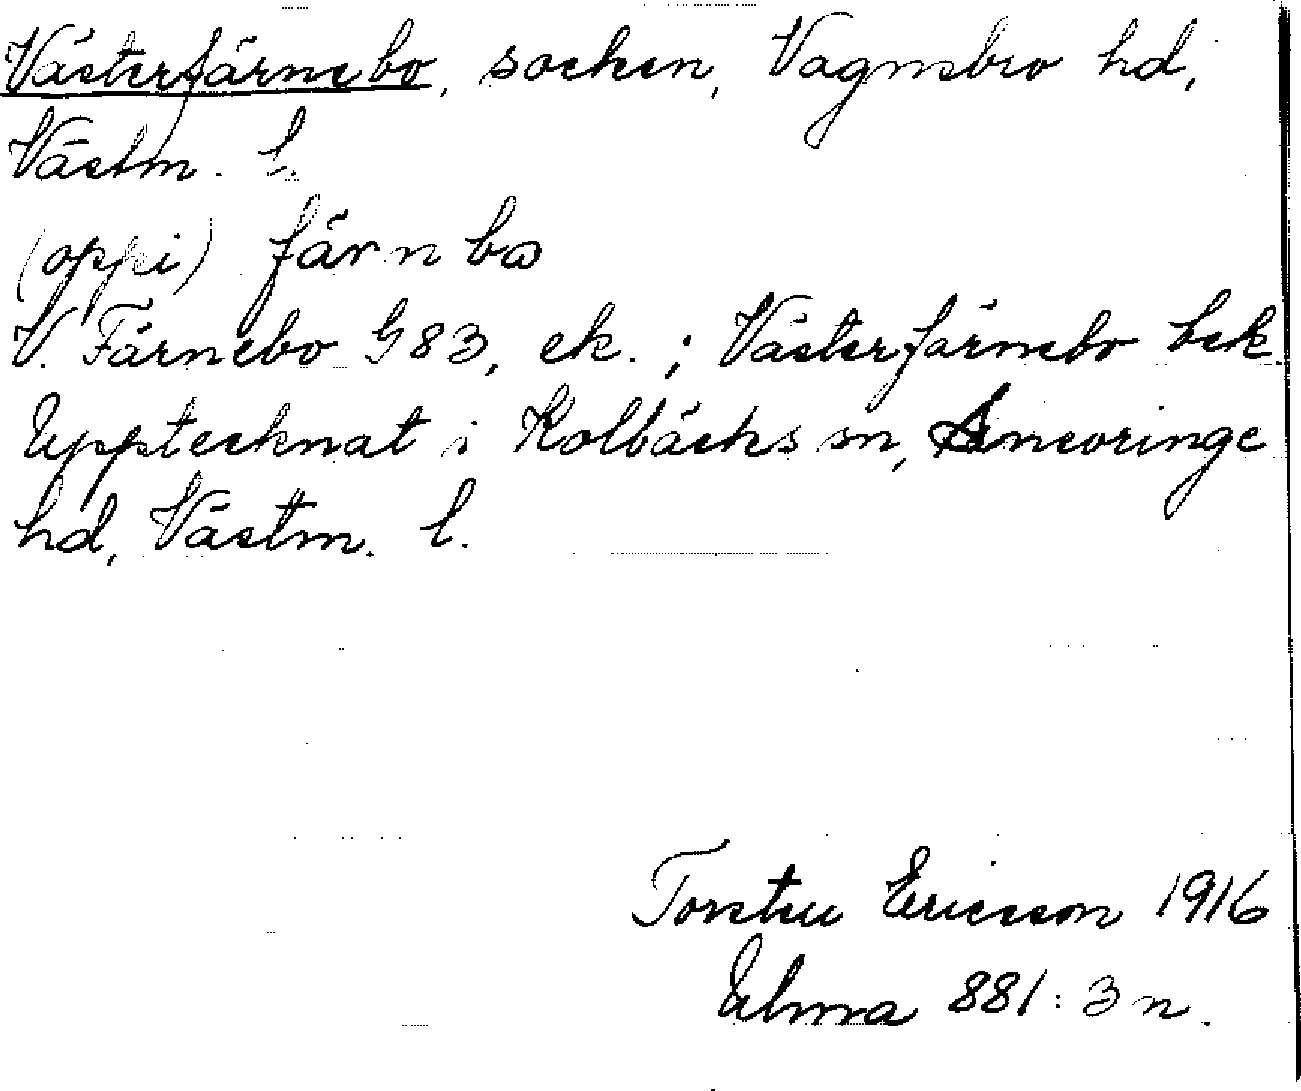 Västerfärnebo, socken, Vagnsbro hd,
Västm. l.
(oppi) färnbω
V. Färnebo G83, ek.; Västerfärnebo bek.
Upptecknat i Kolbäcks sn, Snevringe
hd, Västm. l.
Torsten Ericsson 1916
Ulma 881:3 n.